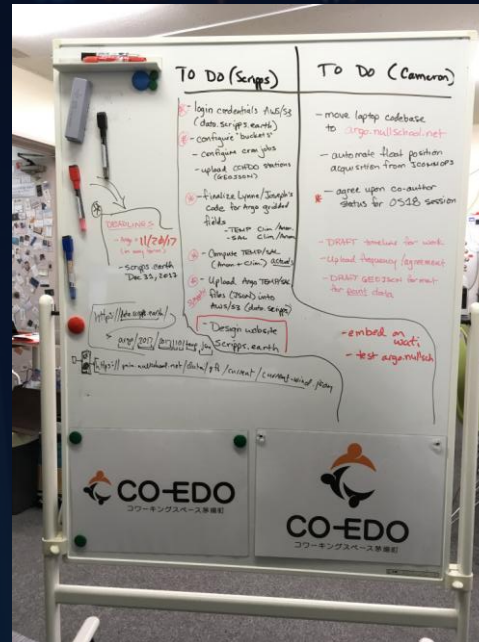 To Do (Scripps)
- login credentials AWS/S3
(data.scripps.earth)
- configure "buckets"
- configure cron jobs
- upload stations
(GEOJSON)
- finalize Lynne/Joseph's
code for Argo gridded
fields
- TEMP Clim/Anom
- SAL Clim/Anom
- Compute TEMP/SAL
(Anom + Clim) actuals
- Upload Argo TEMP/SAL
files (JSON) into
AWS/S3 (data.scripps)
- Design website
Scripps.earth
To Do (Cameron)
- move laptop codebase
to argo.nullschool.net
- automate float position
acquisition from JCOMMOPS
* - agree upon co-author
status for OS18 session
- DRAFT timeline for work
- Upload frequency/agreement
- DRAFT GEOJSON format
for point data
- embed on
- test argo.nullsch
DEADLINES
- Argo = 11/20/17
- scripps.earth
Dec 31, 2017
https://data.scripps.earth/
CO-EDO
コワーキングスペース茅場町
CO-EDO
コワーキングスペース茅場町